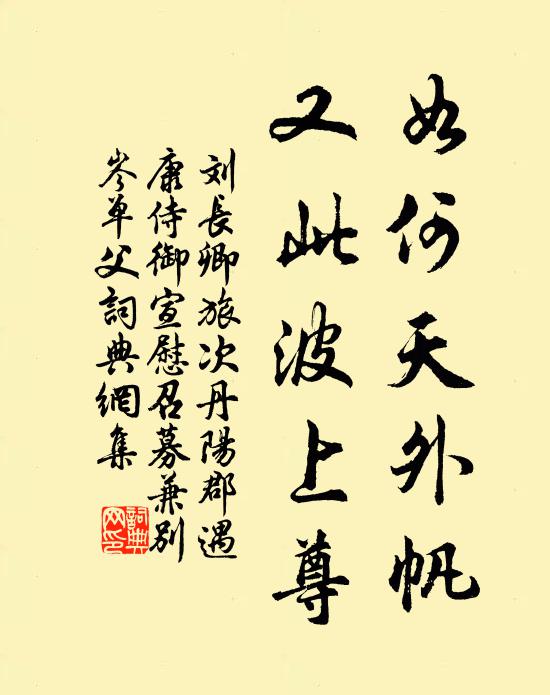 如何天外帆
又此波上尊
刘長卿旅次丹陽郡遇
康侍御宣慰召募兼别
岑单父詞典網集
詞典网印